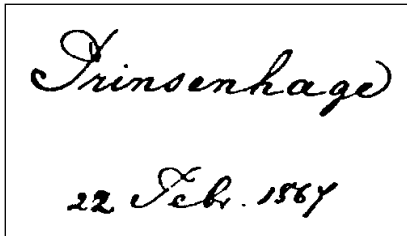 Prinsenhage
22 Febr. 1867